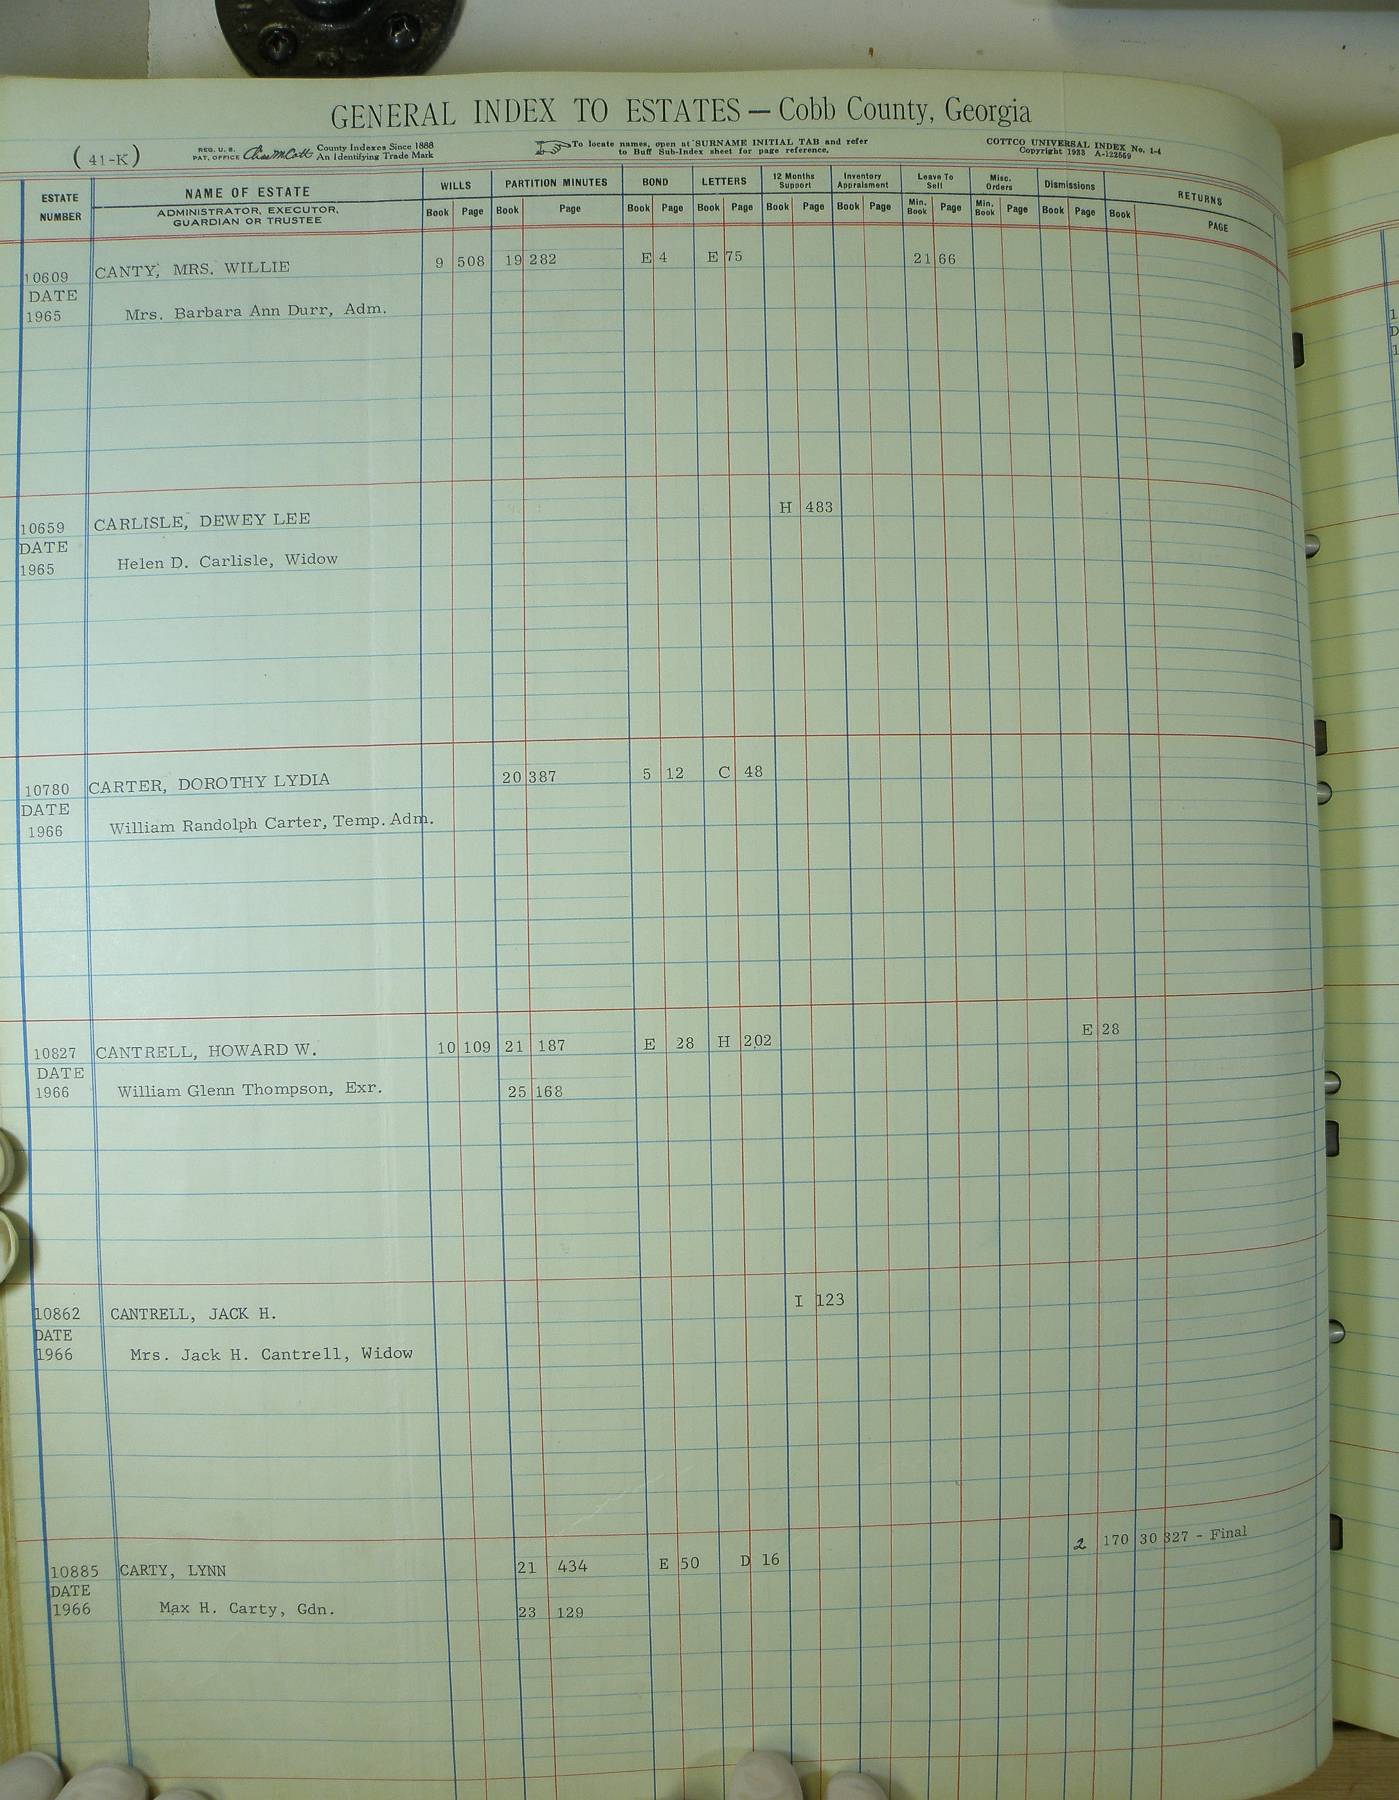 GENERAL INDEX TO ESTATES — Cobb County, Georgia
(41-K) REG. U. S. PAT. OFFICE County Indexes Since 1888 An Identifying Trade Mark To locate names, open at SURNAME INITIAL TAB and refer to Buff Sub-Index sheet for page reference. COTTCO UNIVERSAL INDEX No. 1-4 Copyright 1933 A-122569
ESTATE NUMBER NAME OF ESTATE WILLS PARTITION MINUTES BOND LETTERS 12 Months Support Inventory Appraisment Leave To Sell Misc. Orders Dismissions RETURNS
ADMINISTRATOR, EXECUTOR, GUARDIAN OR TRUSTEE Book Page Book Page Book Page Book Page Book Page Book Page Min. Book Page Min. Book Page Book Page Book PAGE
10609 CANTY, MRS. WILLIE 9 508 19 282 E 4 E 75 21 66
DATE
1965 Mrs. Barbara Ann Durr, Adm.
H 483
10659 CARLISLE, DEWEY LEE
DATE
1965 Helen D. Carlisle, Widow
10780 CARTER, DOROTHY LYDIA 20 387 5 12 C 48
DATE
1966 William Randolph Carter, Temp. Adm.
E 28
10827 CANTRELL, HOWARD W. 10 109 21 187 E 28 H 202
DATE
1966 William Glenn Thompson, Exr. 25 168
I 123
10862 CANTRELL, JACK H.
DATE
1966 Mrs. Jack H. Cantrell, Widow
2 170 30 327 - Final
10885 CARTY, LYNN 21 434 E 50 D 16
DATE
1966 Max H. Carty, Gdn. 23 129